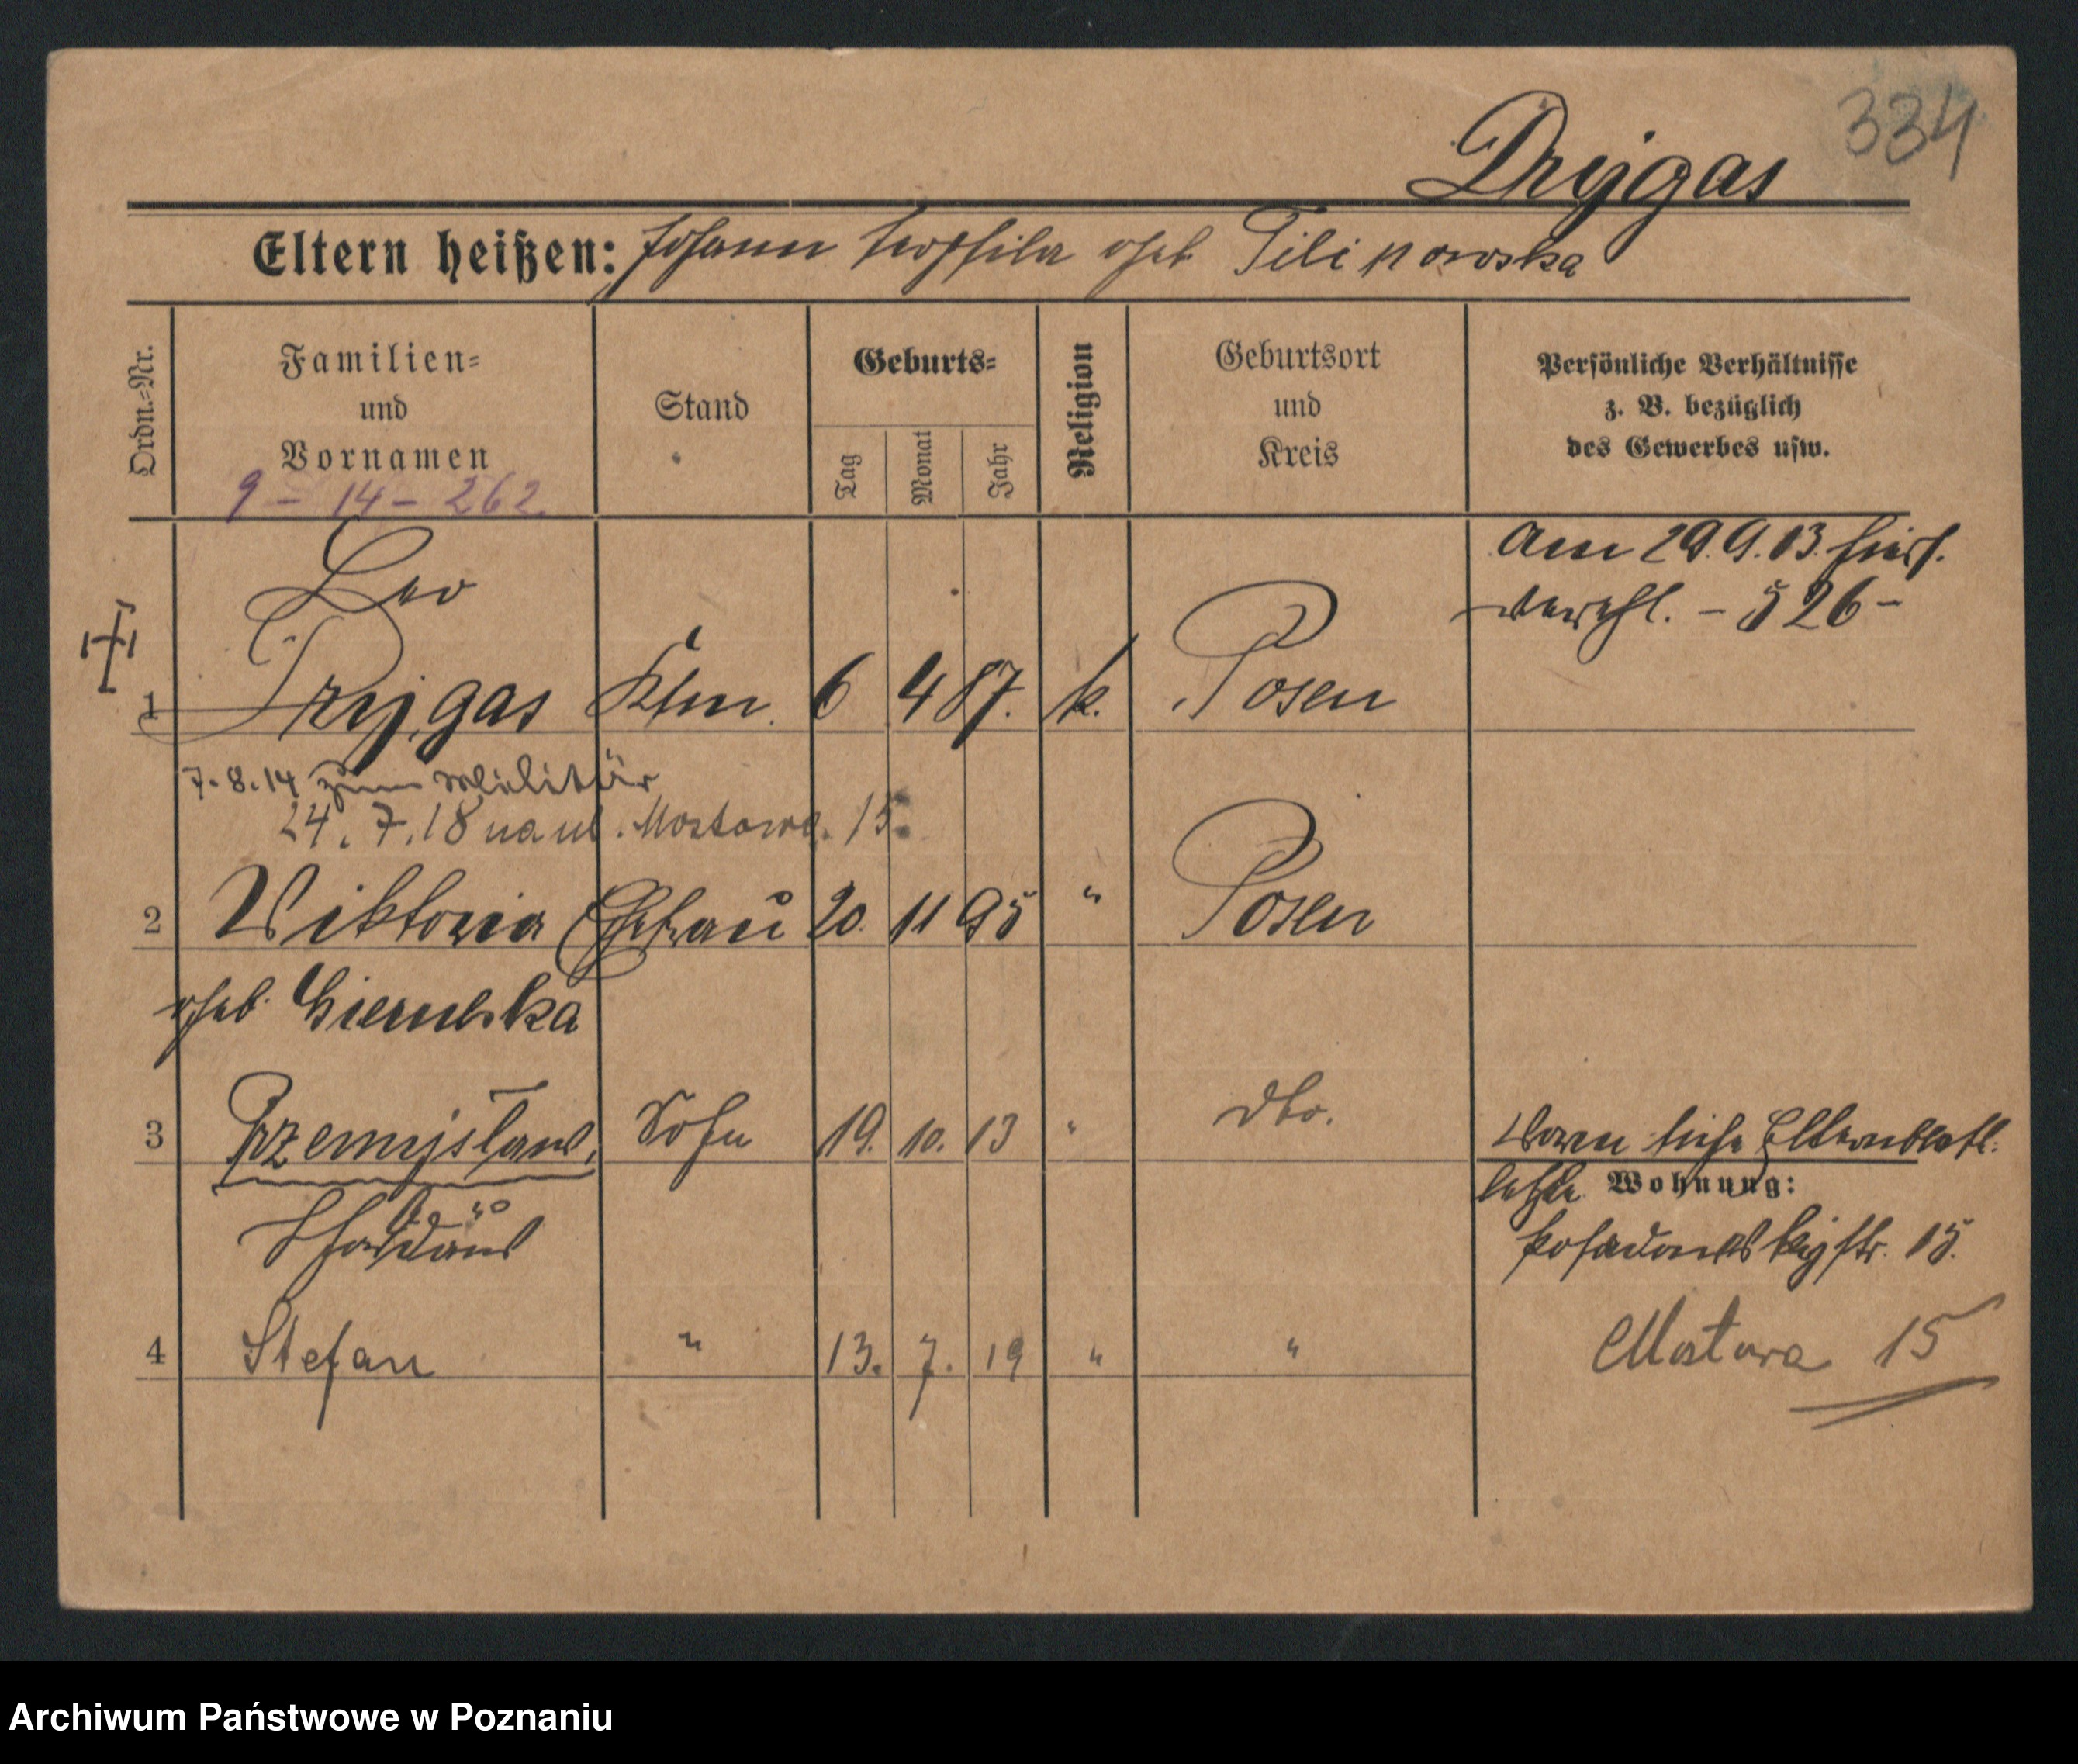 334
Drygas
Eltern heißen: Johann Teophila geb. Filipowska
Ordn.-Nr.
Familien- und Vornamen
Stand
Geburts-
Tag
Monat
Jahr
Religion
Geburtsort und Kreis
Persönliche Verhältnisse z. B. bezüglich des Gewerbes usw.
9 - 14 - 262.
Am 29.9.13. hier
verehl. - § 26 -
Leo
1 Drygas Kfm. 6 4 87. k. Posen
7.8.14 zum Militär
24.7.18 na ul. Mostowa. 15.
2 Viktoria Ehefrau 20. 11 95 " Posen
geb.
3 Przemysław, Sohn 19. 10. 13 " dto.
Thaddäus
Waren siehe Elternblatt.
letzte Wohnung:
str. 15.
4 Stefan " 13. 7. 19 " "
Mostowa 15
Archiwum Państwowe w Poznaniu